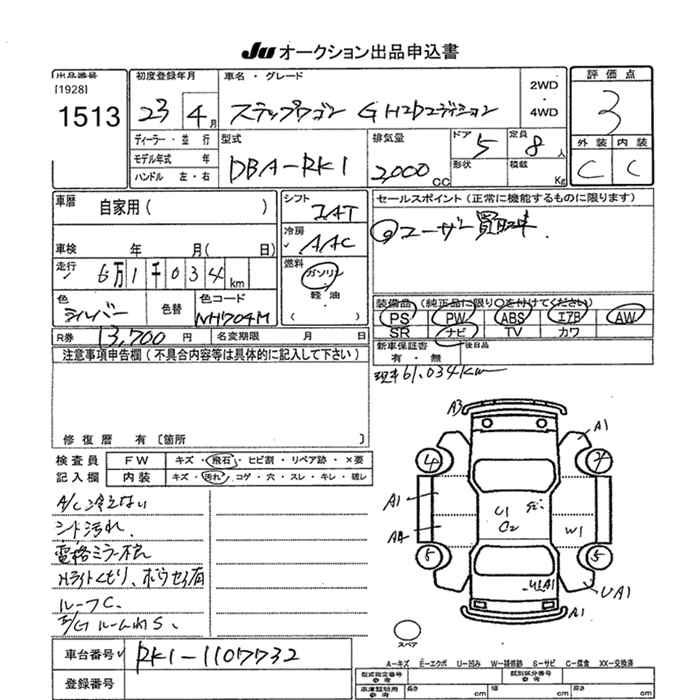 JU オークション出品申込書
出品番号
[1928]
1513
初度登録年月
23 4月
車名・グレード
ステップワゴン G H2Dエディション
2WD
・
4WD
評価点
3
外装 内装
C C
ディーラー・並行
モデル年式 年
ハンドル 左・右
型式
DBA-RK1
排気量
2,000cc
ドア 5
形状
定員 8人
積載 Kg
車歴 自家用( )
車検 年 月( 日)
走行 6万1千034km
色 シルバー
色替
色コード NH704M
シフト IAT
冷房 AAC
燃料
ガソリン
軽油
( )
セールスポイント(正常に機能するものに限ります)
◎ユーザー買取車.
装備品(純正品に限り○を付けてください)
PS PW ABS エアB AW
SR ナビ TV カワ
新車保証書 有・無
後日品
R券 13,700円
名変期限 月 日
現車61,034km
注意事項申告欄(不具合内容等は具体的に記入して下さい)
修復歴 有〔箇所 〕
検査員 FW キズ・飛石・ヒビ割・リペア跡・×要
記入欄 内装 キズ・汚れ・コゲ・穴・スレ・キレ・破レ
A/C冷えない
シート汚れ.
電格ミラー不良
Hライトくもり、
ルーフC.
E/Gルーム内S.
A3
A1
A1
A4
U1
C2
W1
UA1
A1
スペア
車台番号 RK1-1107732
登録番号
A-キズ E-エクボ U-凹み W-補修跡 S-サビ C-腐食 XX-交換済
型式指定番号
類別区分番号
参考
長さ cm 幅 cm 高さ cm